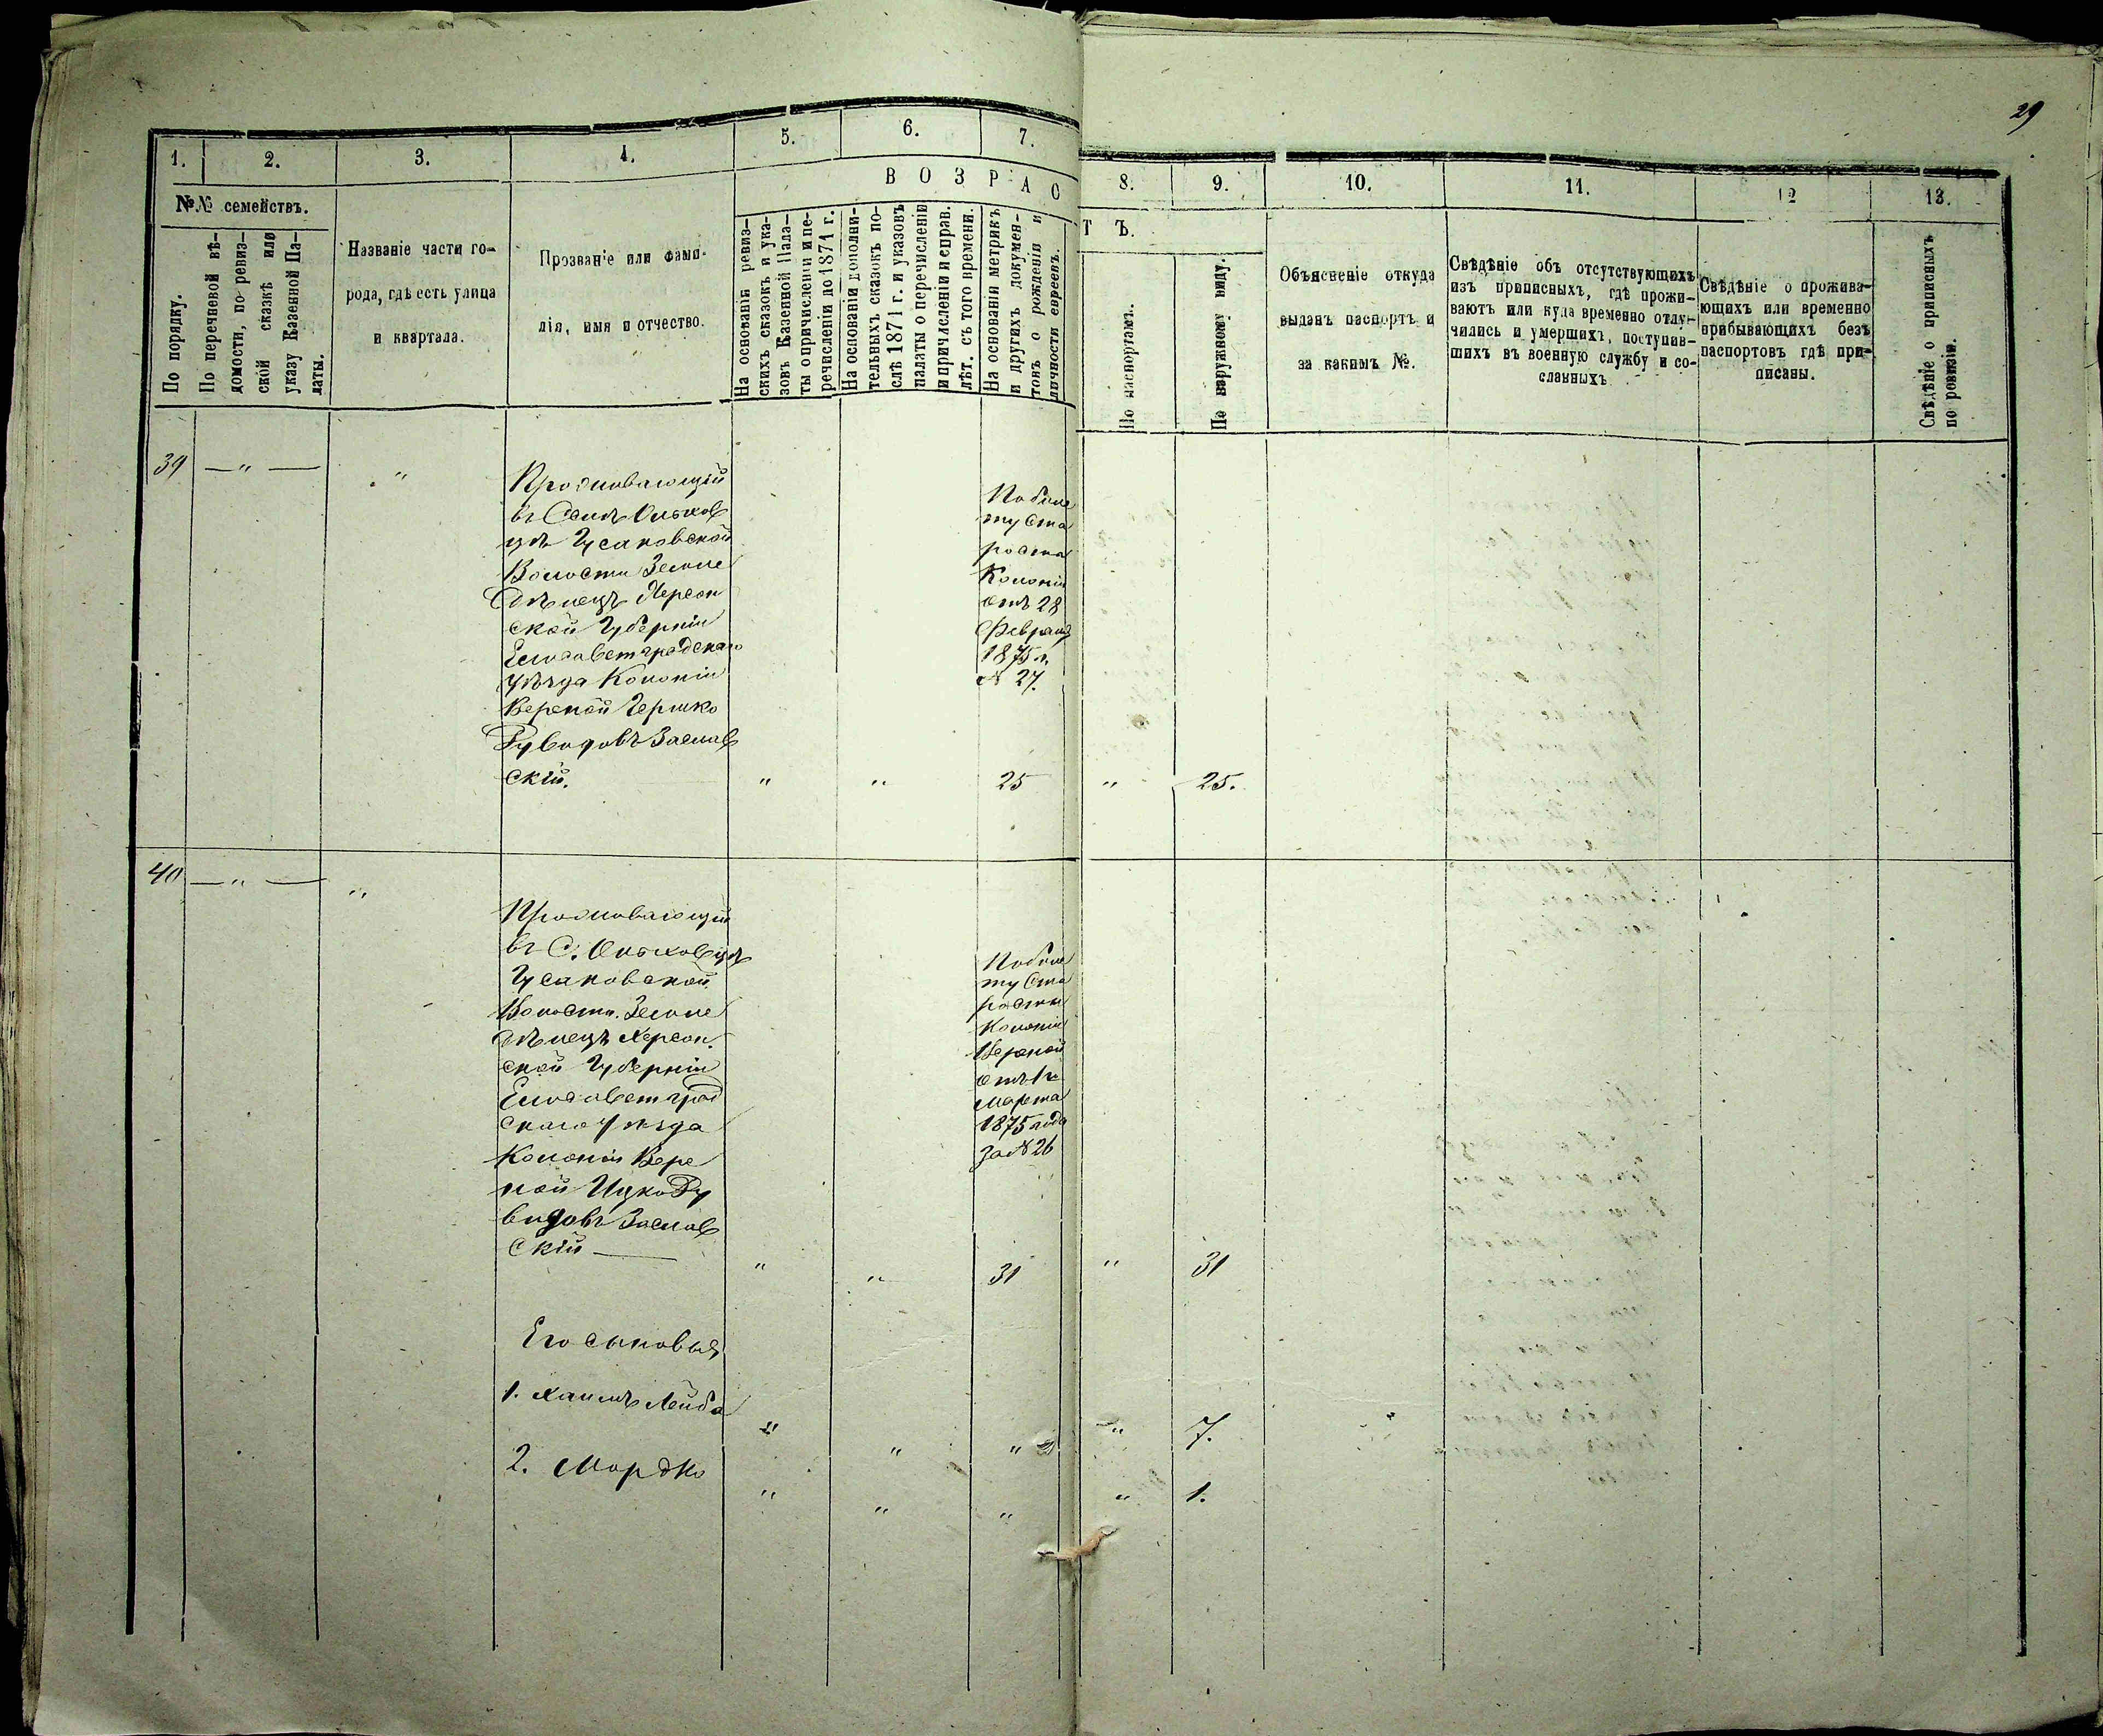 29
1.
2.
3.
4.
5.
6.
7.
8.
9.
10.
11.
12
13.
№№ семействъ.
ВОЗРАС
ТЪ.
По порядку.
По перечневой вѣ-
домости, по ревиз-
ской сказкѣ или
указу Казенной Па-
латы.
Названіе части го-
рода, гдѣ есть улица
и квартала.
Прозваніе или фами-
лія, имя и отчество.
На основаніи ревиз-
скихъ сказокъ и ука-
зовъ Казенной Пала-
ты о причисленіи и пе-
речисленіи до 1871 г.
На основаніи дополни-
тельныхъ сказокъ по-
слѣ 1871 г. и указовъ
палаты о перечисленіи
и причисленіи и справ.
лѣт. съ того времени.
На основаніи метрикъ
и другихъ докумен-
товъ о рожденіи и
личности евреевъ.
По паспортамъ.
По наружному виду.
Объясненіе откуда
выданъ паспортъ и
за какимъ №.
Свѣдѣніе объ отсутствующихъ
изъ приписныхъ, гдѣ прожи-
ваютъ или куда временно отлу-
чились и умершихъ, поступив-
шихъ въ военную службу и со-
сланныхъ
Свѣдѣніе о прожива-
ющихъ или временно
прибывающихъ безъ
паспортовъ гдѣ при-
писаны.
Свѣдѣніе о приписныхъ
по ревизіи.
39 — " — "
Проживающій
въ Селѣ Ольхов
цѣ Гусаковской
Волости Земле
дѣлецъ Херсон
ской Губерніи
Елисаветградскаго
уѣзда Колоніи
Вереной Гершко
Дувидовъ Заслав
скій. " " 25 " 25.
По биле
ту Ста
росты
Колоніи
отъ 28
Февраля
1875 г.
№ 27.
40 — " — "
Проживающій
въ С. Ольховцѣ
Гусаковской
Волости. Земле
дѣлецъ Херсон.
ской Губерніи
Елисаветград
скаго уѣзда
Колоніи Вере
ной Ицко Ду
видовъ Заслав
скій — " " 31 " 31
По биле
ту Ста
росты
Колоніи
Вереной
отъ 1го
Марта
1875 года
за № 26
Его сыновья,
1. Хаимъ Лейба " " " " 7.
2. Мордко " " " " 1.